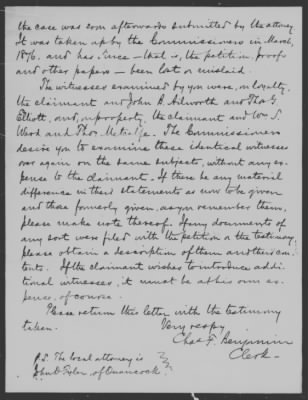 the case was soon afterwards submitted by the attorney
It was taken up by the Commissioners in March,
1876, and has since — that is, the petition, proofs
and other papers — been lost or mislaid.
The witnesses examined by you were, on loyalty,
the claimant and John R. Ailworth and Thos G
Elliott, and, on property, the claimant and Wm S.
Wark and Thos. Metcalfe. The Commissioners
desire you to examine these identical witnesses
over again on the same subjects, without any ex-
pense to the claimant. If there be any material
difference in their statements as now to be given
and those formerly given, as you remember them,
please make note thereof. If any documents of
any sort were filed with the petition or the testimony,
please obtain a description of them and their con-
tents. If the claimant wishes to introduce addi-
tional witnesses, it must be at his own ex-
pense, of course.
Please return this letter with the testimony
taken.
Very respy
Chas F. Benjamin
Clerk.
P.S. The local attorney is
of Onancock.